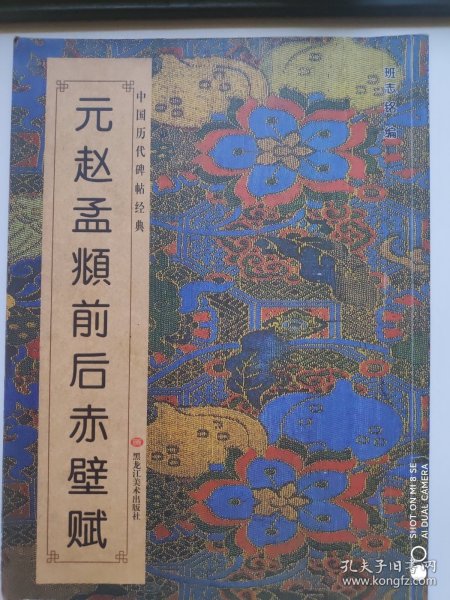 中国历代碑帖经典
元赵孟頫前后赤壁赋
黑龙江美术出版社
班志铭 编
SHOT ON MI 8 SE
AI DUAL CAMERA
孔夫子旧书网
www.kongfz.com